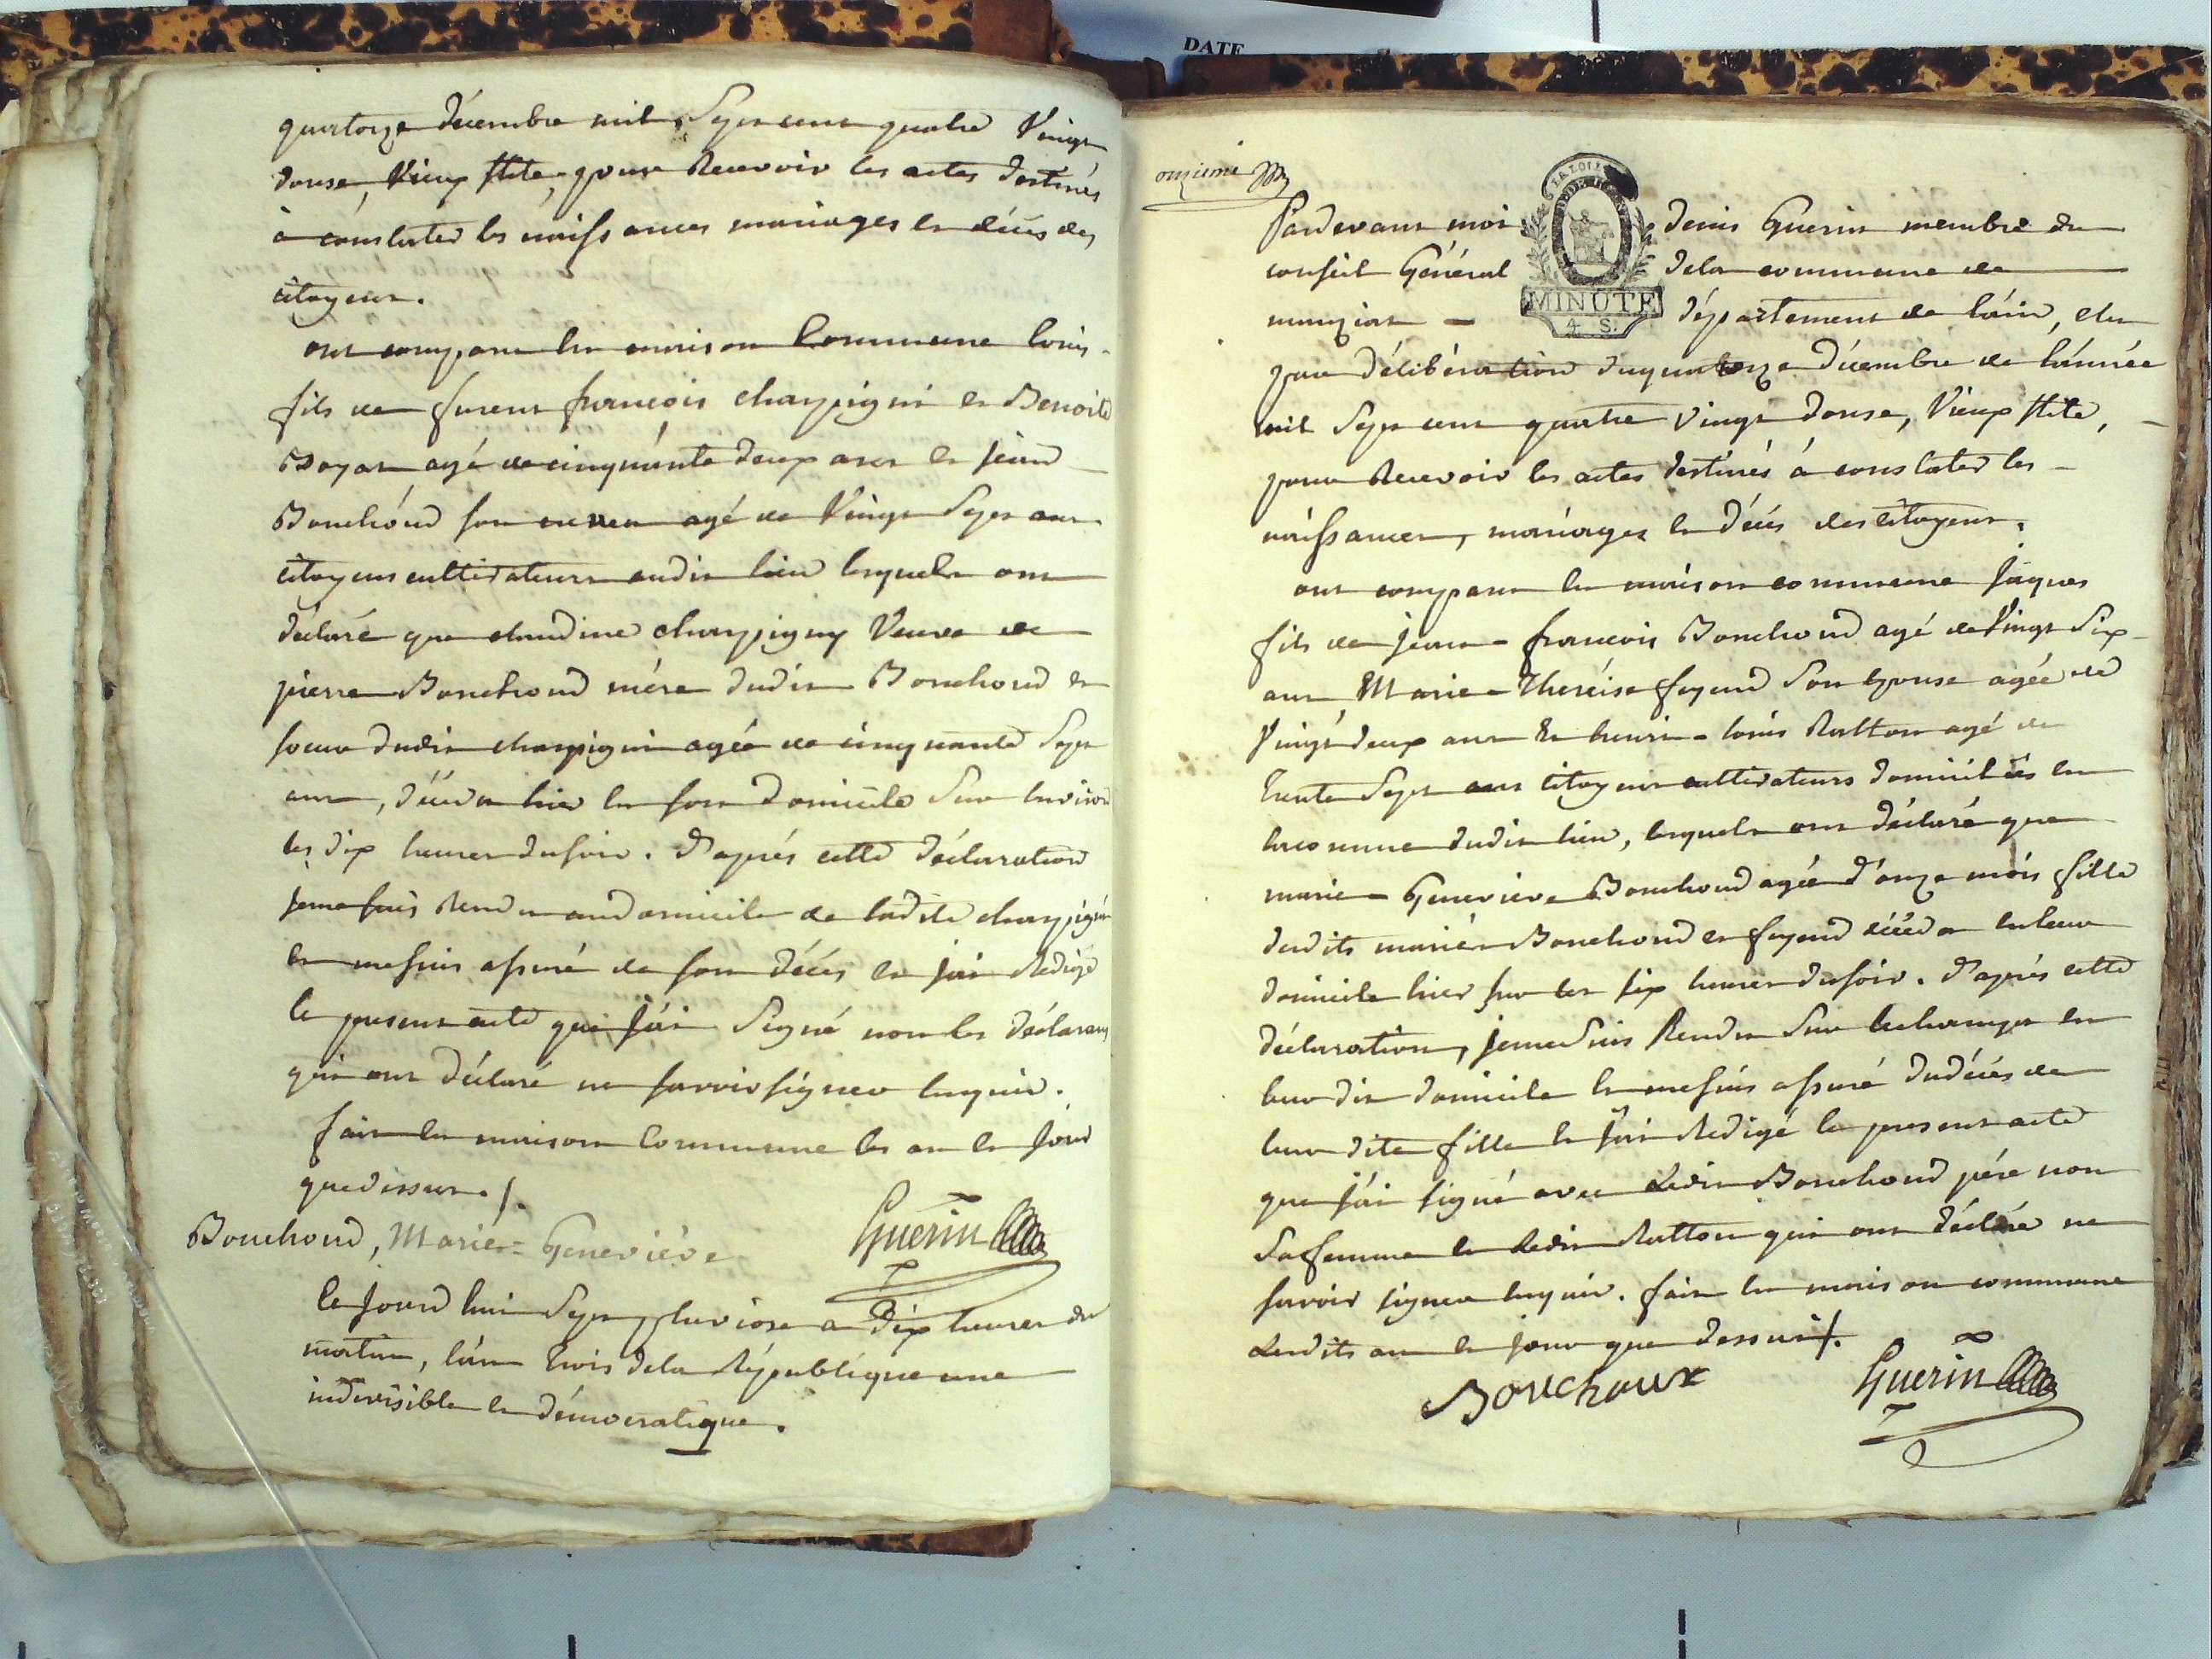 DATE
quatorze décembre mil Sept cent quatre Vingt
douse, Vieux Stile, pour Recevoir les actes destinés
à constater les naissances mariages et décés des
citoyens.
ont comparu en maison Commune louis
fils de furent françois champigni et Benoite
agé de cinquante deux ans et jean
Bouchoud son neveu agé de Vingt Sept ans
citoyens cultivateurs audit lieu lesquels ont
déclaré que claudine champigny Veuve de
pierre Bouchoud mére dudit Bouchoud et
soeur dudit champigni agée de cinquante Sept
ans, décéda hier en son domicile Sur environ
les dix heures du soir. D'aprés cette déclaration
je me suis Rendu au domicile de ladite champigni
et me suis assuré de son décés et j'ai Rédigé
le present acte que j'ai Signé non les déclarans
qui ont déclaré ne savoir signer enquis.
fait en maison Commune les an et jour
que dessus ./.
Guerin
Bouchoud, Marie= Geneviève
Ce jourd hui Sept pluviose a dix heures du
matin, l'an trois de la République une
indivisible et démocratique.
onzieme
LA LOI
MINUTE
4 S.
Pardevant moi denis Guerin membre du
conseil Général de la commune de
département de l'ain, élu
par délibération du quatorze décembre de l'année
mil Sept cent quatre Vingt douse, Vieux Stile,
pour Recevoir les actes destinés à constater les
naissances, mariages et décés des citoyens.
ont comparu en maison commune jaques
fils de jean - francois Bouchoud agé de Vingt Six
ans Marie - Theréise Son Epouse agée de
Vingt deux ans Et henri - louis Ratton agé de
trente Sept ans citoyens cultivateurs domiciliés en
la comune dudit lieu, lesquels ont déclaré que
marie - Genevieve Bouchoud agée d'onze mois fille
desdits mariés Bouchoud et décéda en leur
domicile hier sur les six heures du soir. D'aprés cette
déclaration, je me Suis Rendu Sur le champ en
leur dit domicile et me suis assuré du décés de
leur dite fille et j'ai Rédigé le present acte
que j'ai signé avec Ledit Bouchoud pére non
Sa femme et Ledit Ratton qui ont déclaré ne
savoir signer enquis. fait en maison commune
Lesdits an et jour que dessus ./.
Bouchoux
Guerin